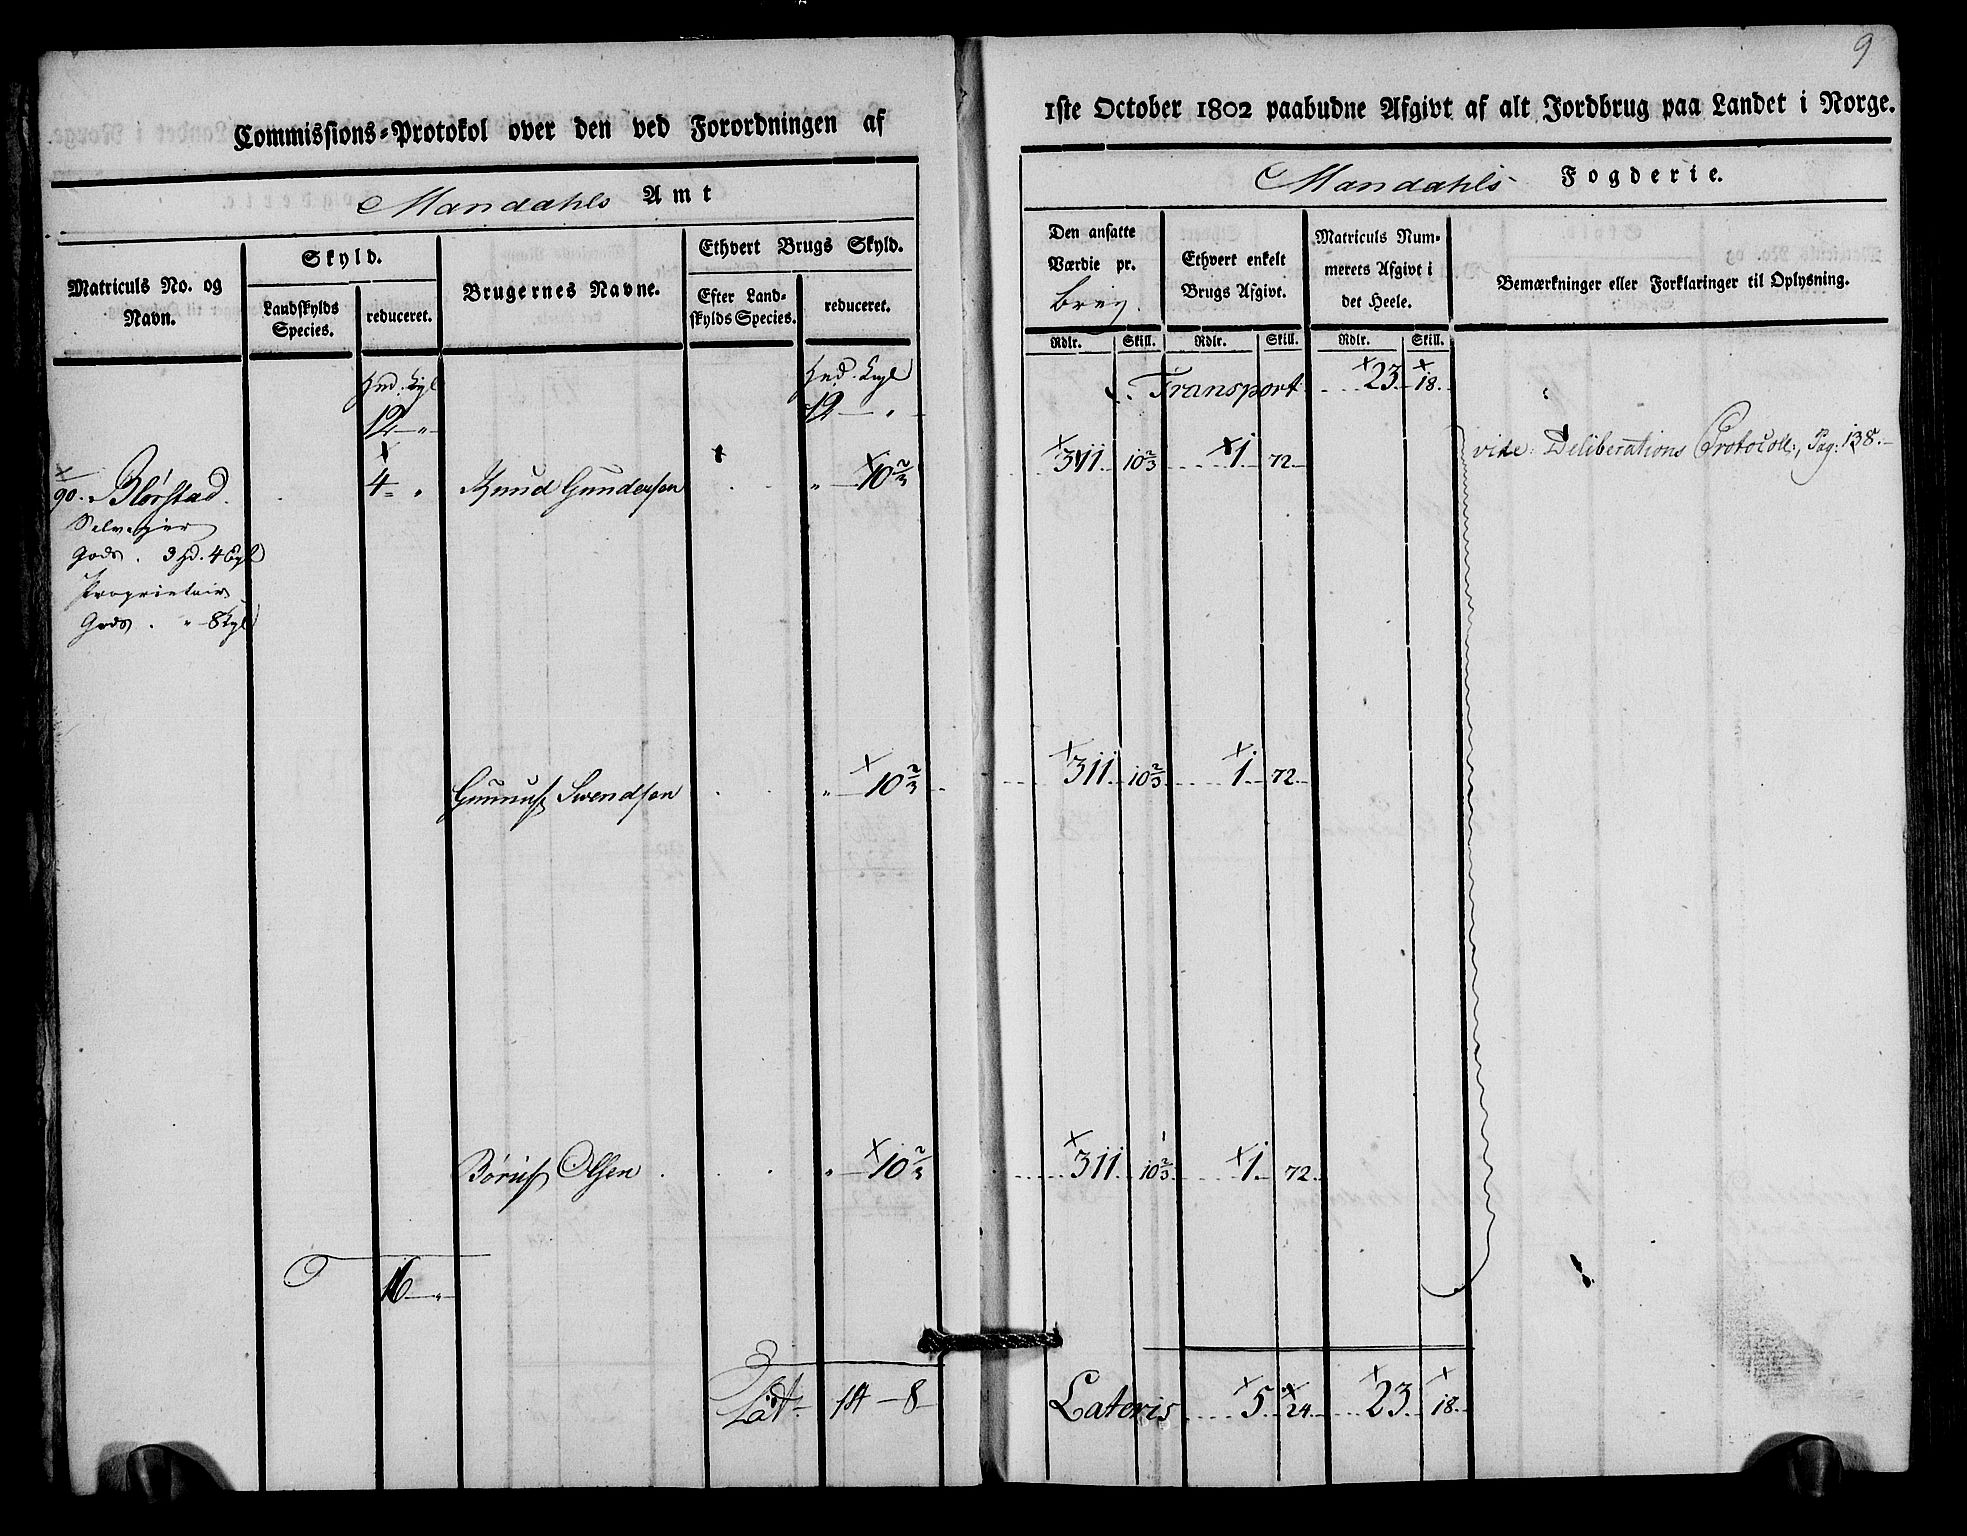 9
Commissions-Protokol over den ved Forordningen af 1ste October 1802 paabudne Afgivt af alt Jordbrug paa Landet i Norge.
Mandahls Amt
Mandahls Fogderie.
Matriculs No. og Navn.
Skyld.
Landskylds Species.
reduceret.
Brugernes Navne.
Ethvert Brugs Skyld.
Efter Landskylds Species.
reduceret.
Den ansatte Værdie pr. brug.
Ethvert enkelt Brugs Afgivt.
Matriculs Nummerets Afgivt i det Heele.
Bemærkninger eller Forklaringer til Oplysning.
Rdlr. Skill. Rdlr. Skill. Rdlr. Skill.
Hud. Kgl Hud. Kgl
12 - " 12 - " Transport 23 18
90. Blørstad 4 - " Knud Gundersen " - 10 2/3 311 10 2/3 1 72 vide Deliberations Protocoll, Pag: 138.
Selveier
Gods . 3 Hd. 4 Kgl
Proprietair
Gods . " 8 Kgl
Gunnuf Swendsen " - 10 2/3 311 10 2/3 1 72
Børuf Olsen " - 10 2/3 311 10 2/3 1 72
16 - "
Lat 14 - 8 Lateris 5 24 23 18